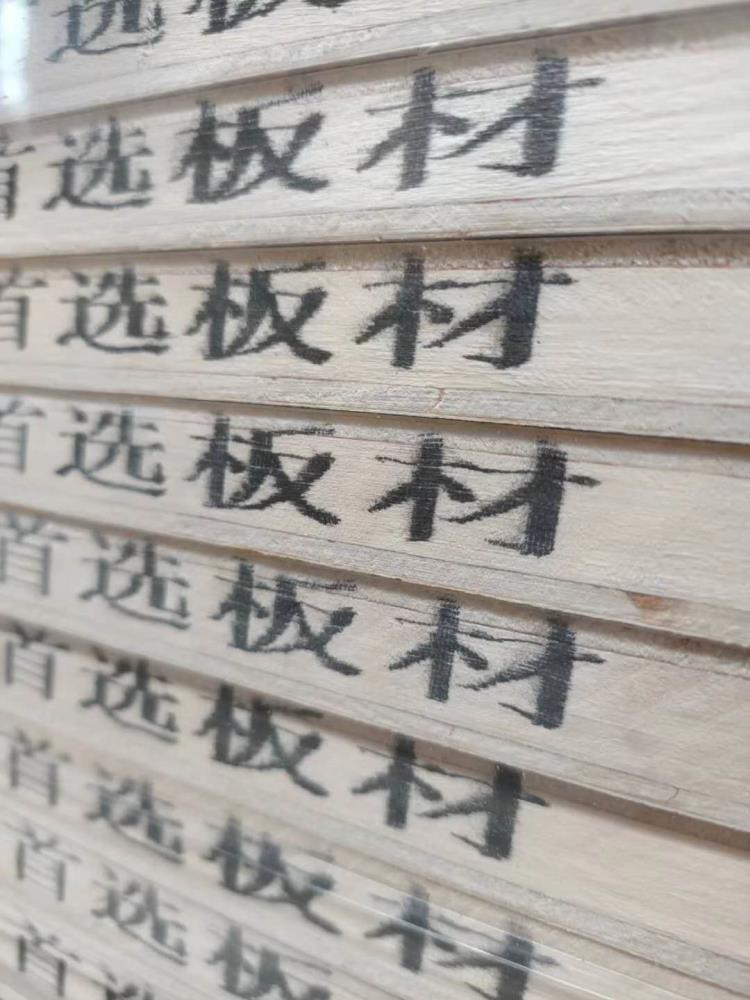 选板
首选板材
首选板材
首选板材
首选板材
首选板材
首选板材
首选板
首选